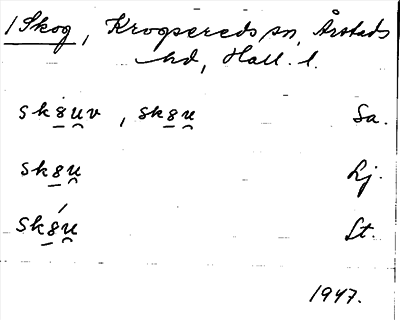 1 Skog, Krogsereds sn, Årstads
hd, Hall. l.
sk8uv, sk8u Sa.
sk8u Lj.
sk8́u Lt.
1947.